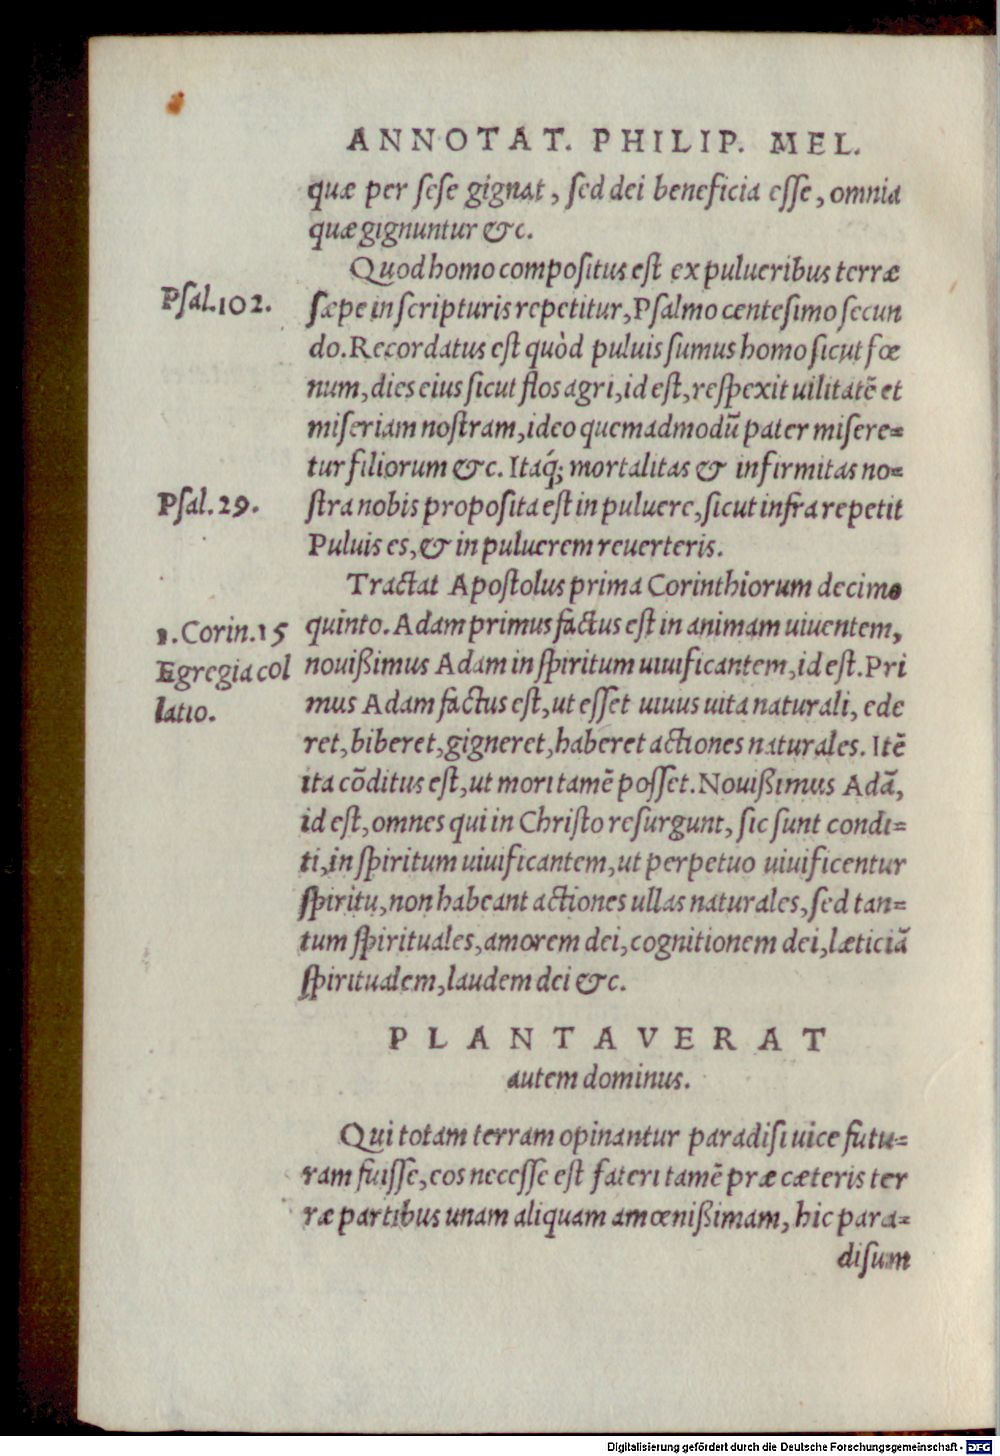 ANNOTAT. PHILIP. MEL.
quæ per ſeſe gignat, ſed dei beneficia eſſe, omnia
quæ gignuntur &c.
Quod homo compoſitus eſt ex pulueribus terræ
Pſal.102.
ſæpe in ſcripturis repetitur, Pſalmo centeſimo ſecun
do. Recordatus eſt quòd puluis ſumus homo ſicut fœ
num, dies eius ſicut flos agri, id eſt, reſpexit uilitatē et
miſeriam noſtram, ideo quemadmodū pater miſere⸗
tur filiorum &c. Itaq́; mortalitas & infirmitas no⸗
Pſal.29.
ſtra nobis propoſita eſt in puluere, ſicut infra repetit
Puluis es, & in puluerem reuerteris.
Tractat Apoſtolus prima Corinthiorum decimo
1.Corin.15
quinto. Adam primus factus eſt in animam uiuentem,
Egregia col
nouißimus Adam in ſpiritum uiuificantem, id eſt. Pri
latio.
mus Adam factus eſt, ut eſſet uiuus uita naturali, ede
ret, biberet, gigneret, haberet actiones naturales. Itē
ita cōditus eſt, ut mori tamē poſſet. Nouißimus Adā,
id eſt, omnes qui in Chriſto reſurgunt, ſic ſunt condi⸗
ti, in ſpiritum uiuificantem, ut perpetuo uiuificentur
ſpiritu, non habeant actiones ullas naturales, ſed tan⸗
tum ſpirituales, amorem dei, cognitionem dei, læticiā
ſpiritualem, laudem dei &c.
PLANTAVERAT
autem dominus.
Qui totam terram opinantur paradiſi uice futu⸗
ram fuiſſe, eos neceſſe eſt fateri tamē præ cæteris ter
ræ partibus unam aliquam amœnißimam, hic para⸗
diſum
Digitalisierung gefördert durch die Deutsche Forschungsgemeinschaft - DFG